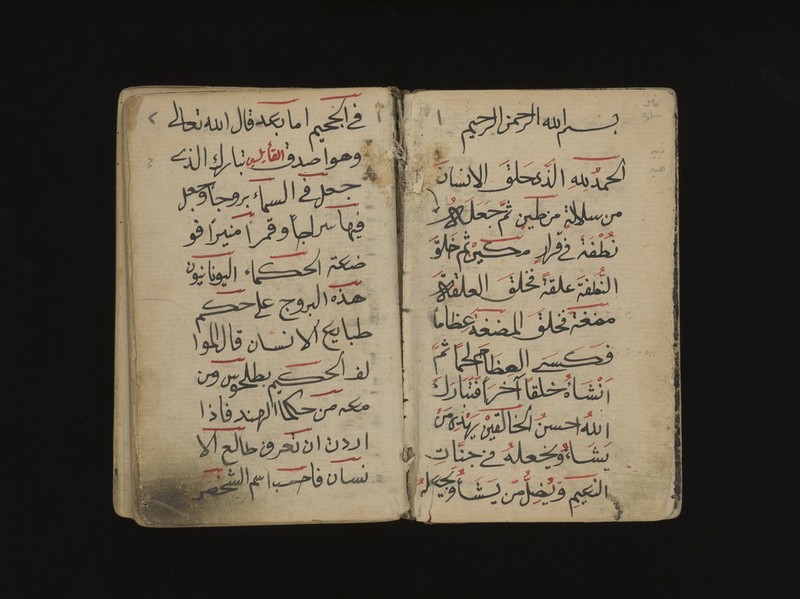 بسم الله الرحمن الرحيم
الحمدُ لله الذى خلق الانسانَ
من سلالةٍ من طين ثمَّ جعله
نُطْفَةً فى قرارٍ مكينٍ ثم خلقَ
النُّطفةَ علقةً فخلقَ العلقة
مضغة فخلق المضغةَ عظاماً
فكسى العظامَ لحماً ثمَّ
انشأهُ خلقاً آخرَ فتبارك
اللهُ احسنُ الخالقين يهدى مَنْ
يشاءُ ويجعلهُ فى جناتِ
النعيمِ ويُضلُّ مَنْ يشأ ويجعله
فى الجحيم اما بعد قال الله تعالى
وهو اصدق القائلين تبارك الذى
جعل فى السماء بروجاً وجعل
فيها سراجاً وقمراً منيراً فو
ضعة الحكماء اليونانيون
هذه البروج على حكم
طبايع الانسان قال الموا
لف الحكيم بطلموس ومن
معه من حكما الهند فاذا
اردت ان تعرف طالع الا
نسان فاحسب اسم الشخص